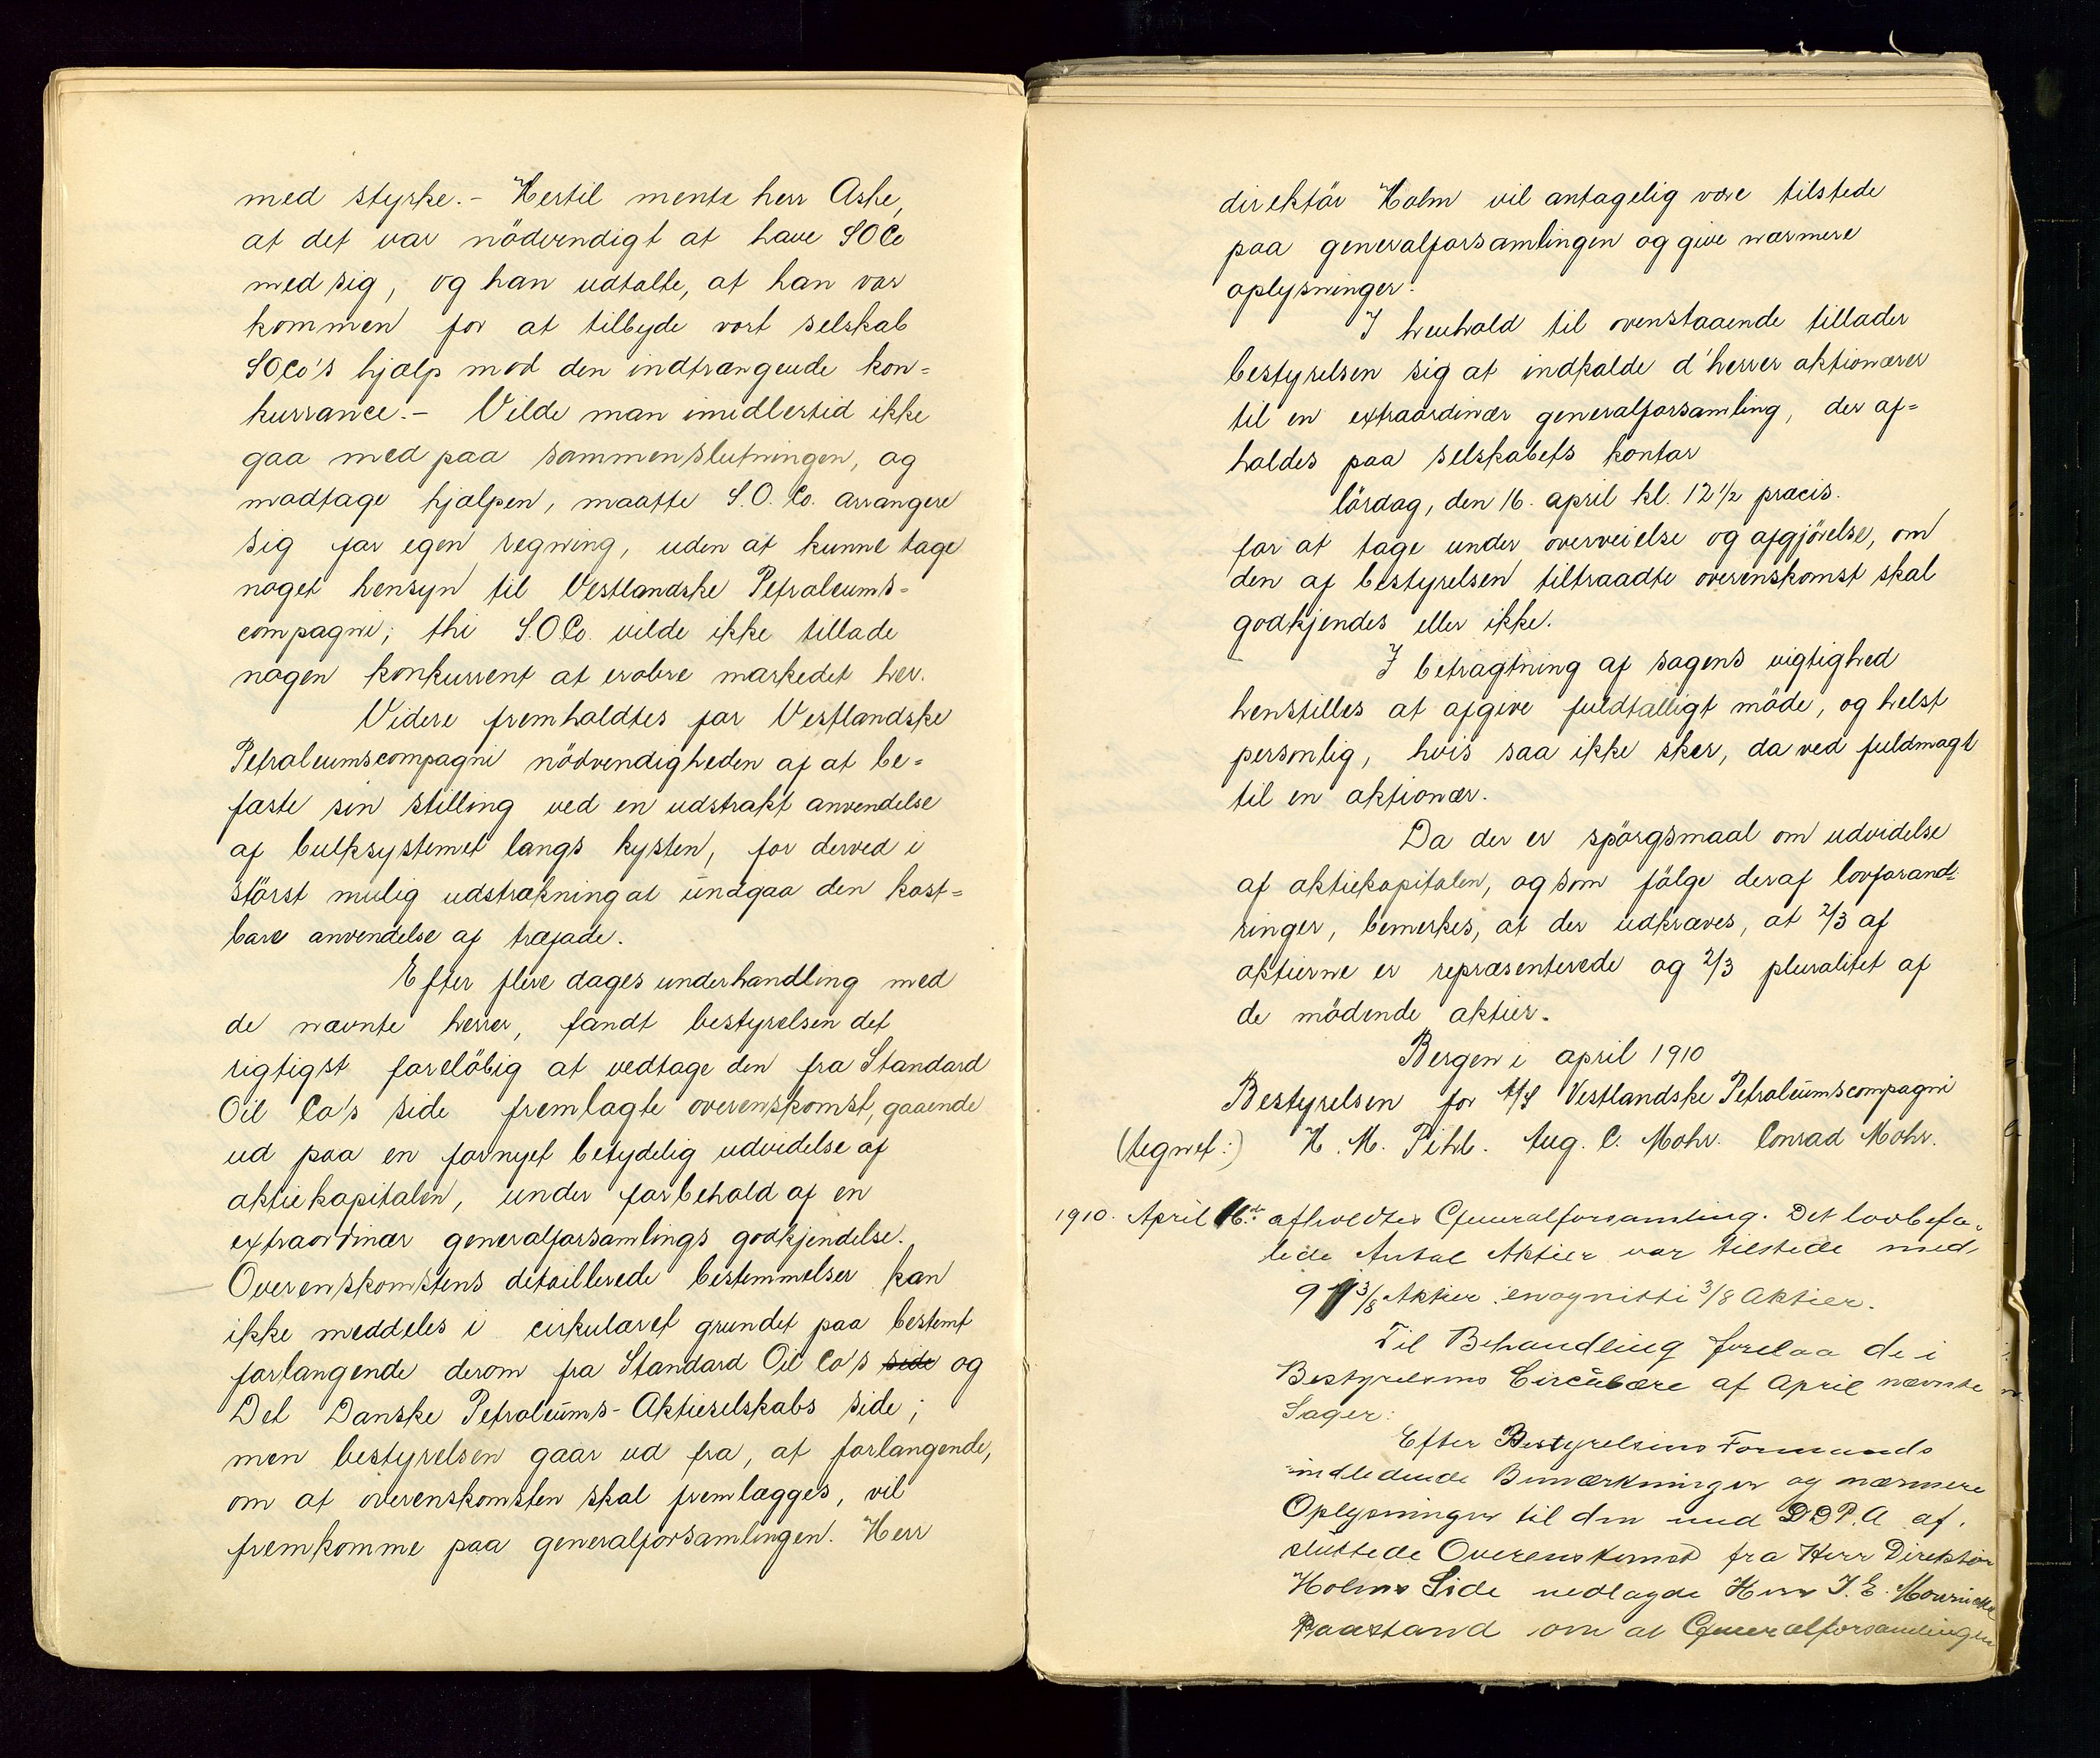 med styrke. - Hertil mente herr Aske,
at det var nödvendigt at have SOCo
med sig, og han udtalte, at han var
kommen for at tilbyde vort selskab
SOCo's hjælp mod den indtrængende kon=
kurrance. - Vilde man imidlertid ikke
gaa med paa sammenslutningen, og
modtage hjælpen, maatte S.O.Co. arrangere
sig for egen regning, uden at kunne tage
noget hensyn til Vestlandske Petroleums=
compagni; thi S.O.Co. vilde ikke tillade
nogen konkurrent at erobre markedet her.
Videre fremholdtes for Vestlandske
Petroleumscompagni nödvendigheden af at be=
fæste sin stilling ved en udstrakt anvendelse
af bulksystemet langs kysten, for derved i
störst mulig udstrækning at undgaa den kost=
bare anvendelse af træfade.
Efter flere dages underhandling med
de nævnte herrer, fandt bestyrelsen det
rigtigst forelöbig at vedtage den fra Standard
Oil Co's side fremlagte overenskomst, gaaende
ud paa en fornyet betydelig udvidelse af
aktiekapitalen, under forbehold af en
extraordinær generalforsamlings godkjendelse.
Overenskomstens detaillerede bestemmelser kan
ikke meddeles i cirkulæret grundet paa bestemt
forlangende derom fra Standard Oil Co's side og
Det Danske Petroleums-Aktieselskabs side;
men bestyrelsen gaar ud fra, at forlangende,
om at overenskomsten skal fremlægges, vil
fremkomme paa generalforsamlingen. Herr
direktör Holm vil antagelig være tilstede
paa generalforsamlingen og give nærmere
oplysninger.
I henhold til ovenstaaende tillader
bestyrelsen sig at indkalde d'herrer aktionærer
til en extraordinær generalforsamling, der af=
holdes paa selskabets kontor
lördag, den 16. april kl. 12½ præcis.
for at tage under overveielse og afgjörelse, om
den af bestyrelsen tiltraadte overenskomst skal
godkjendes eller ikke.
I betragtning af sagens vigtighed
henstilles at afgive fuldtalligt möde, og helst
personlig, hvis saa ikke sker, da ved fuldmagt
til en aktionær.
Da der er spörgsmaal om udvidelse
af aktiekapitalen, og som fölge deraf lovforand=
ringer, bemerkes, at der udkræves, at 2/3 af
aktierne er repræsenterede og 2/3 pluralitet af
de mödende aktier.
Bergen i april 1910
Bestyrelsen for A/S Vestlandske Petroleumscompagni
(tegnet:) H. M. Pihl. Aug. C. Mohr. Conrad Mohr.
1910. April 16de afholdtes Generalforsamling. Det lovbefa-
lede Antal Aktier var tilstede med
91 3/8 Aktier: enognitti 3/8 Aktier.
Til Behandling forelaa de i
Bestyrelsens Circulære af April nævnte
Sager:
Efter Bestyrelsens Formands
indledende Bemærkninger og nærmere
Oplysninger til den med DDP.A af-
sluttede Overenskomst fra Herr Direktör
Holms Side nedlagde Herr J. E.
Paastand om at Generalforsamlingen